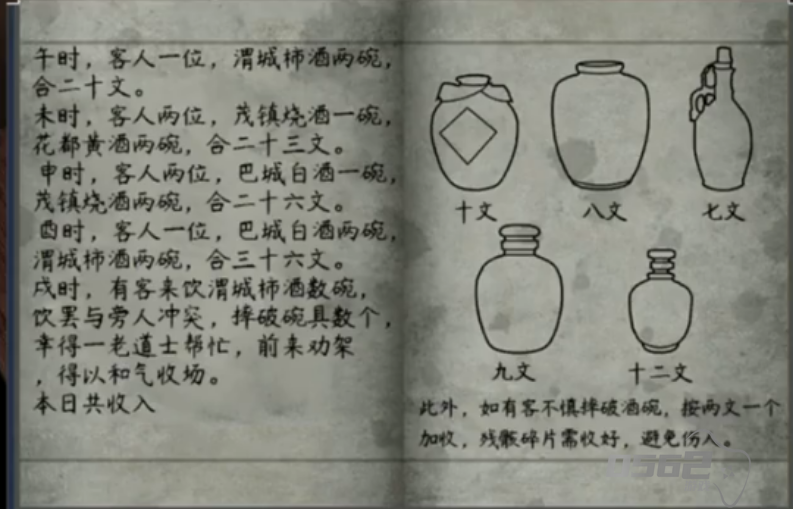 午时，客人一位，渭城柿酒两碗，
合二十文。
未时，客人两位，茂镇烧酒一碗，
花都黄酒两碗，合二十三文。
申时，客人两位，巴城白酒一碗，
茂镇烧酒两碗，合二十六文。
酉时，客人一位，巴城白酒两碗，
渭城柿酒两碗，合三十六文。
戌时，有客来饮渭城柿酒数碗，
饮罢与旁人冲突，摔破碗具数个，
幸得一老道士帮忙，前来劝架
，得以和气收场。
本日共收入
十文
八文
七文
九文
十二文
此外，如有客不慎摔破酒碗，按两文一个
加收，残骸碎片需收好，避免伤人。